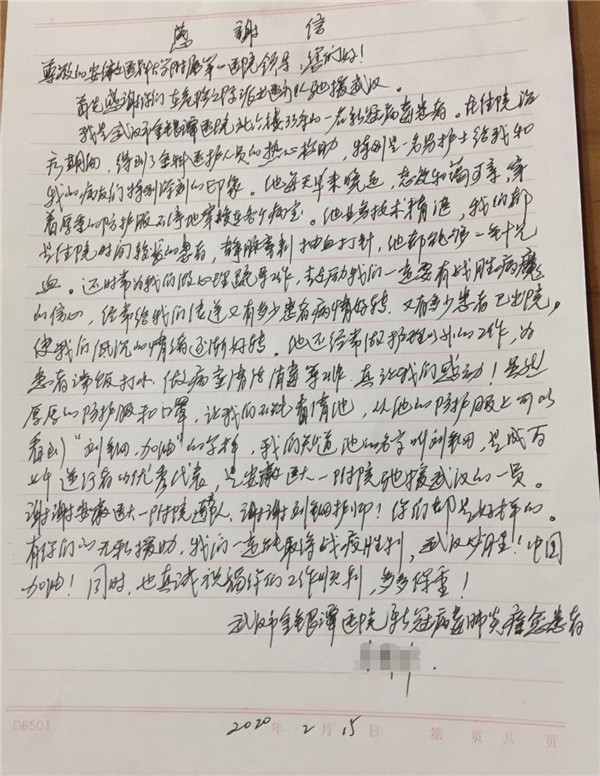 感谢信
尊敬的安徽医科大学附属第一医院领导,您们好!
首先感谢你们在危险之际派出医疗队驰援武汉。
我是武汉市金银潭医院北六楼33床的一名新冠病毒患者。在住院治
疗期间,得到了全科医护人员的热心帮助,特别是一名男护士给我和
我的病友们特别深刻的印象。他每天早来晚走,态度和蔼可亲,穿
着厚厚的防护服不停地穿梭在各个病室。他业务技术精湛,我们都
是住院时间较长的患者,静脉穿刺抽血打针,他都能够一针见
血。还时常为我们做心理疏导工作,鼓励我们一定要有战胜病魔
的信心,经常给我们传递又有多少患者病情好转,又有多少患者已出院,
使我们低沉的情绪逐渐好转。他还经常做护理以外的工作,为
患者端饭打水、做病室清洁消毒等工作,真让我们感动!虽然
厚厚的防护服和口罩,让我们不能看清他,从他的防护服上可以
看到“刘钢,加油”的字样,我们知道他的名字叫刘钢,是成百
上千逆行者的优秀代表,是安徽医大一附院驰援武汉的一员。
谢谢安徽医大一附院医疗队、谢谢刘钢护师!你们都是好样的。
有你们的无私援助,我们一定能取得战疫胜利,武汉必胜!中国
加油!同时,也真诚祝福你们工作顺利,多多保重!
武汉市金银潭医院新冠病毒肺炎痊愈患者
2020年2月15日 第 页共 页
DB501